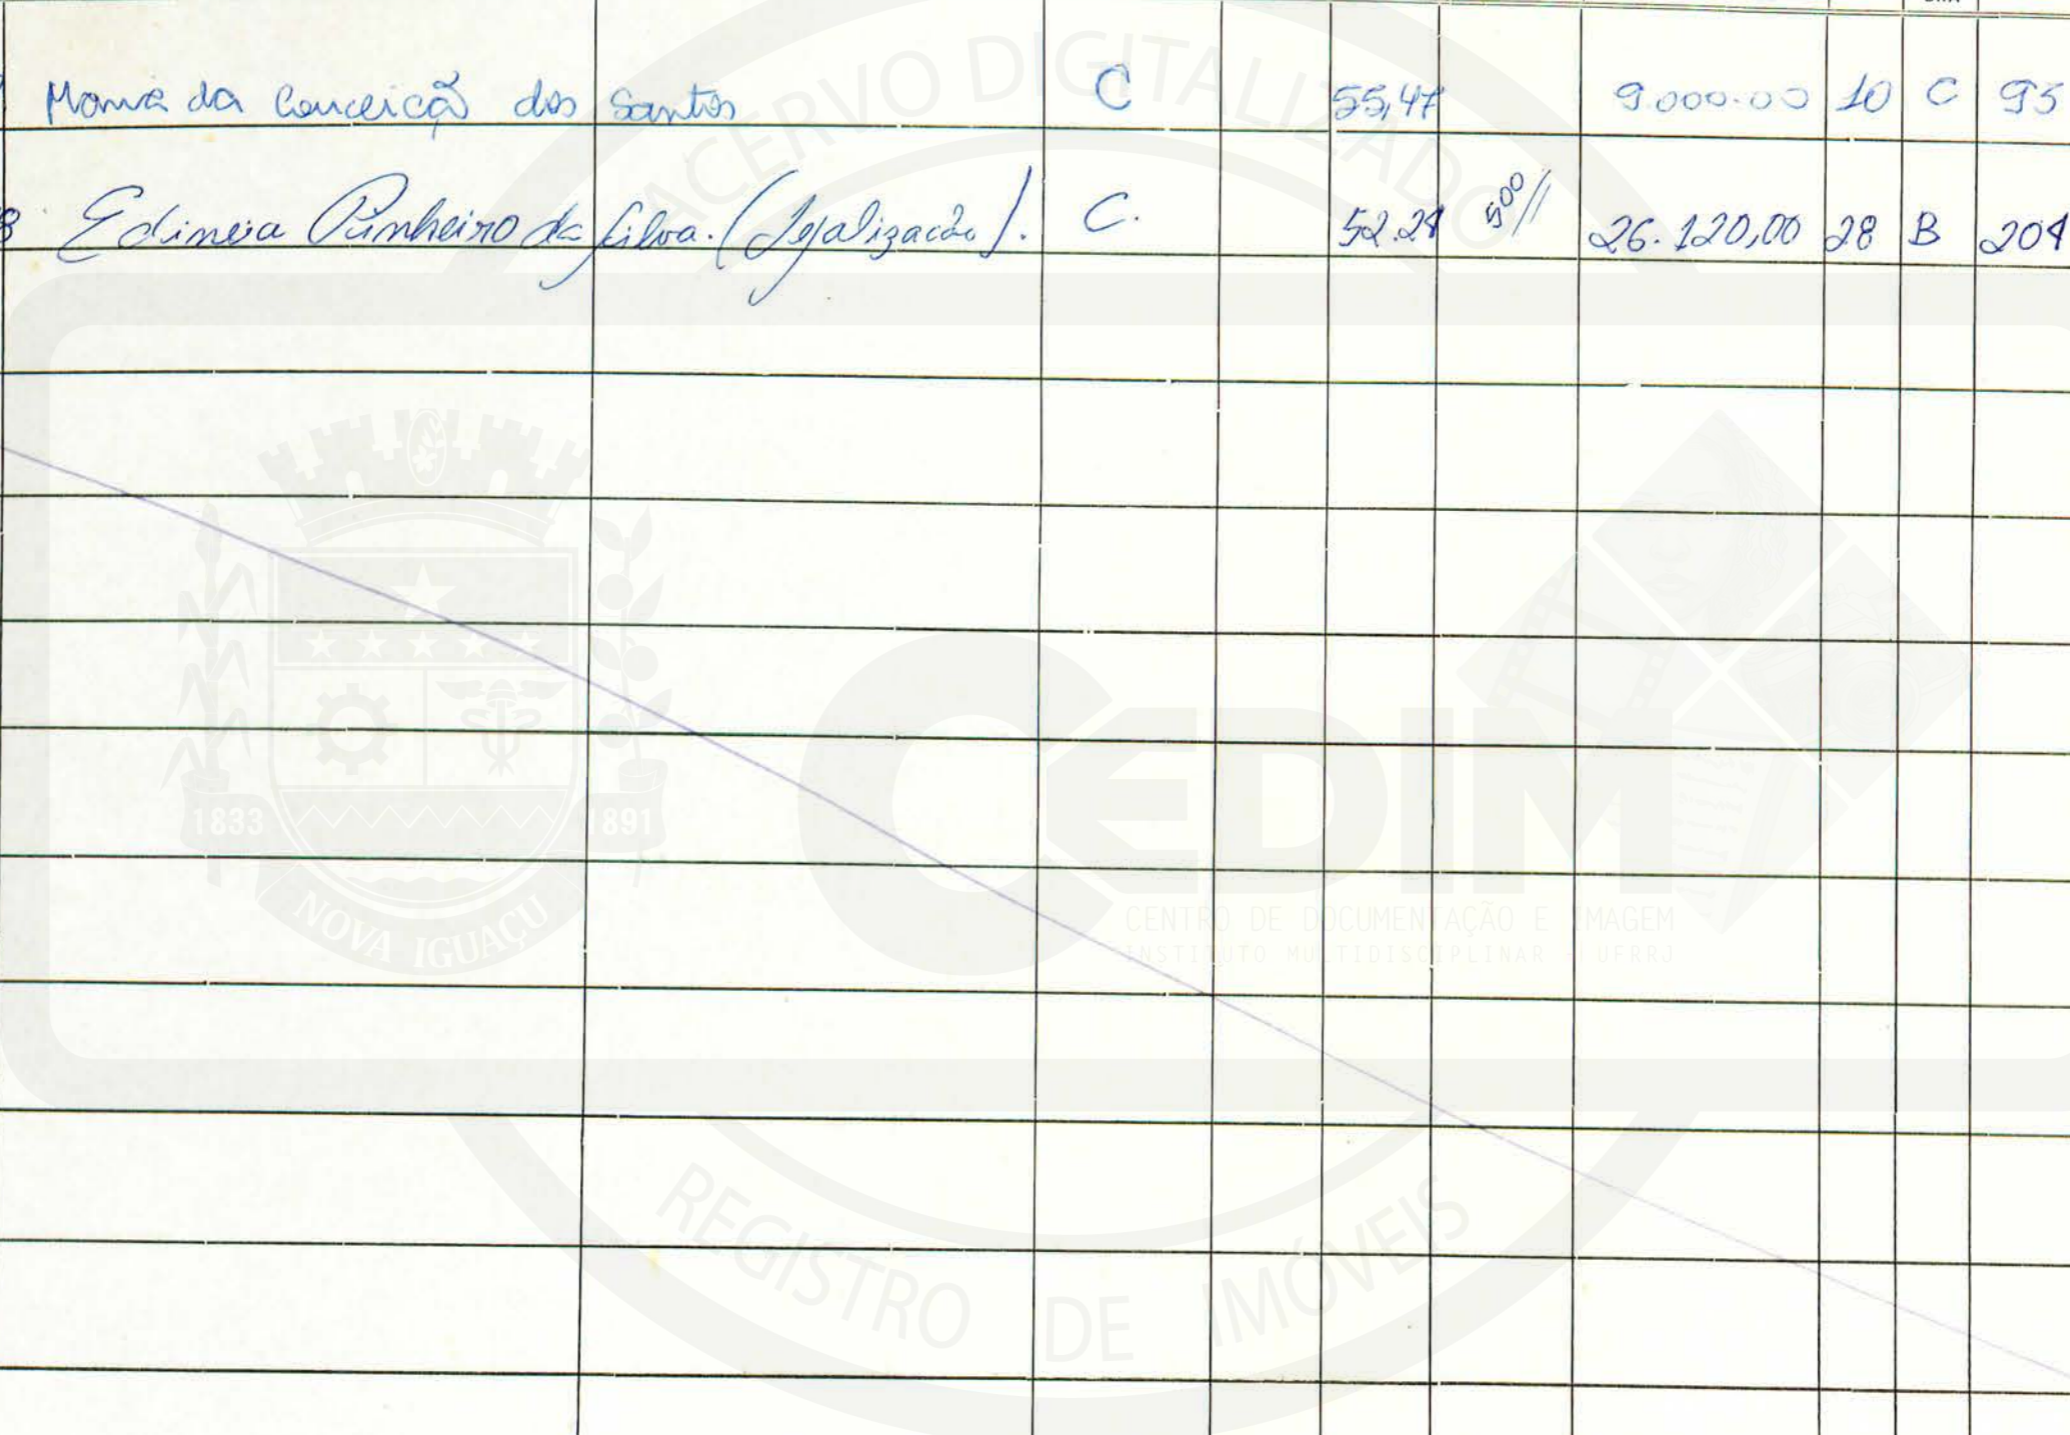 Maria da Conceição dos Santos C 55,47 9.000.00 10 C 95
3 Edimeia Pinheiro da Silva. (Legalização). C. 52.24 500// 26.120,00 28 B 204
ACERVO DIGITALIZADO
1833 1891
NOVA IGUAÇU
CEDIM
CENTRO DE DOCUMENTAÇÃO E IMAGEM
INSTITUTO MULTIDISCIPLINAR - UFRRJ
REGISTRO DE IMÓVEIS